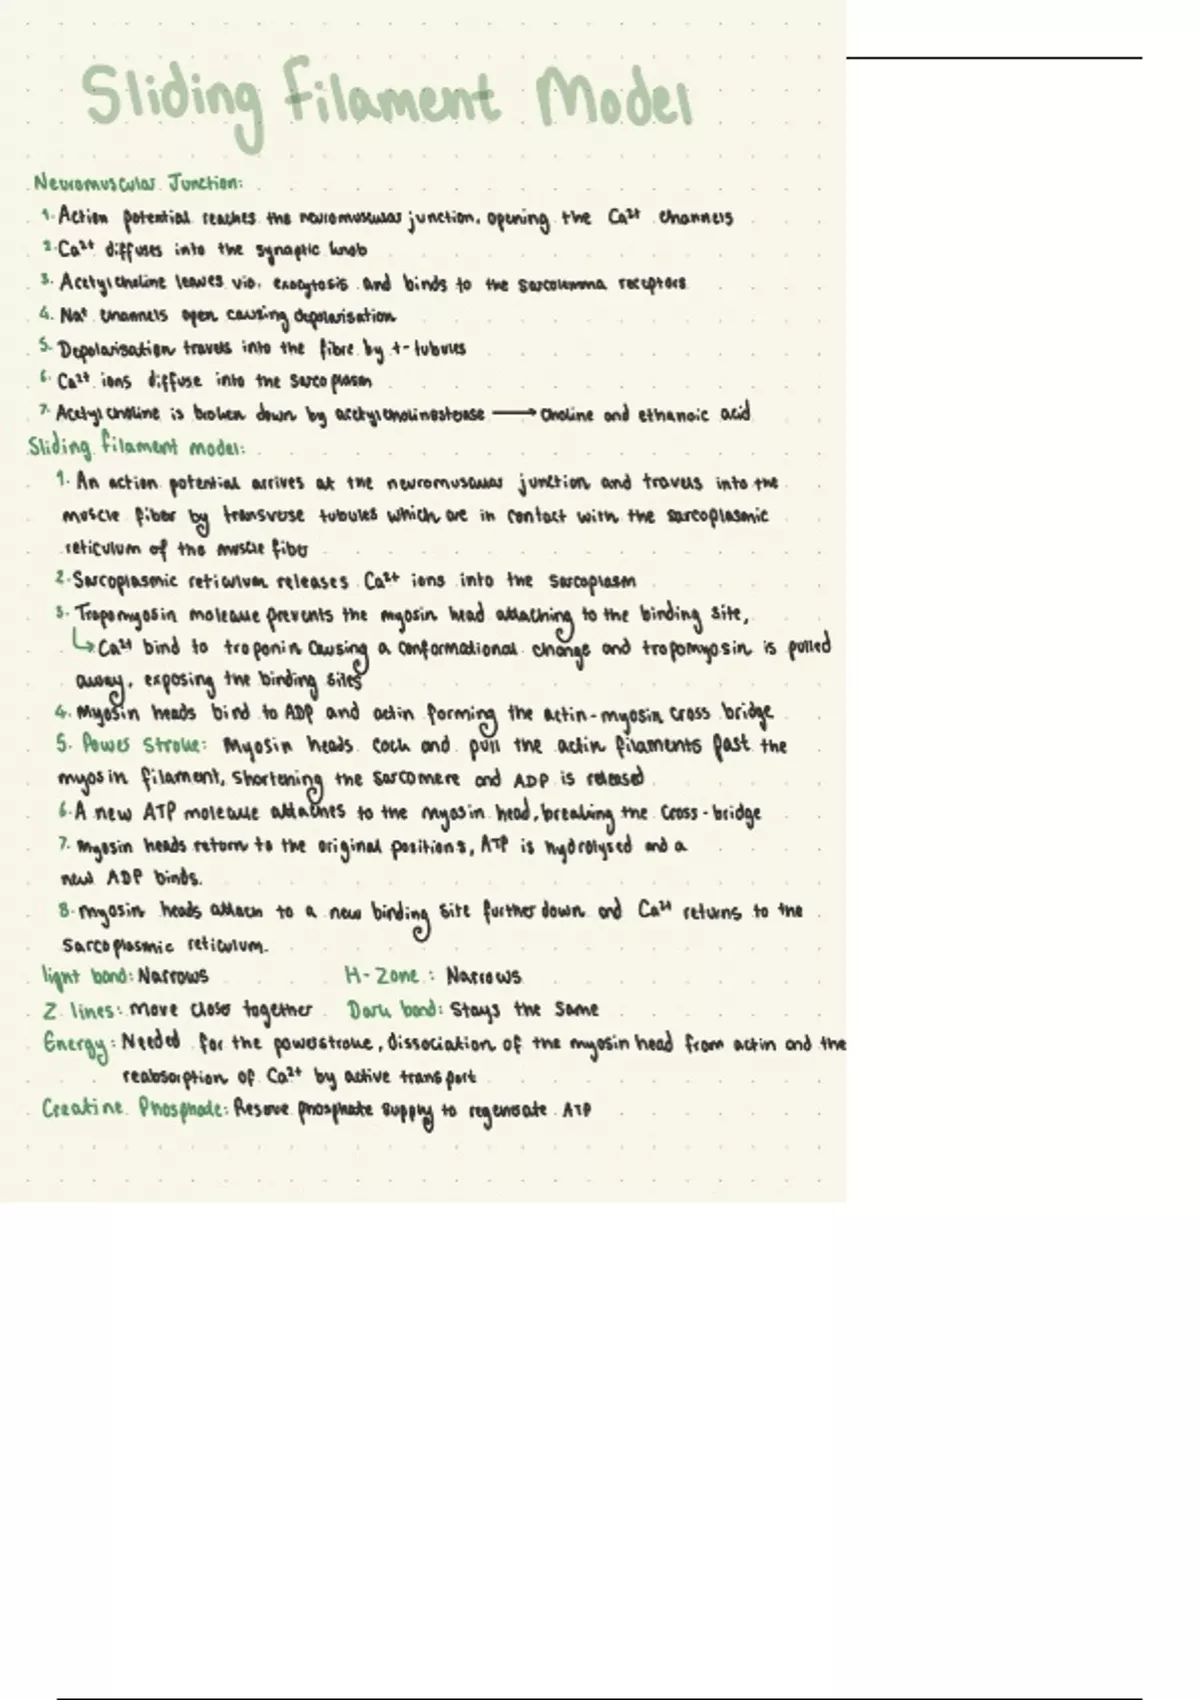 Sliding filament Model
Neuromuscular Junction:
1. Action potential reaches the neuromuscular junction, opening the Ca²⁺ channels
2. Ca²⁺ diffuses into the synaptic knob
3. Acetylcholine leaves via exocytosis and binds to the sarcolemma receptors
4. Na⁺ channels open causing depolarisation
5. Depolarisation travels into the fibre by t-tubules
6. Ca²⁺ ions diffuse into the sarcoplasm
7. Acetylcholine is broken down by acetylcholinesterase → choline and ethanoic acid
Sliding filament model:
1. An action potential arrives at the neuromuscular junction and travels into the
muscle fiber by transverse tubules which are in contact with the sarcoplasmic
reticulum of the muscle fiber
2. Sarcoplasmic reticulum releases Ca²⁺ ions into the sarcoplasm
3. Tropomyosin molecule prevents the myosin head attaching to the binding site,
↳ Ca²⁺ bind to troponin causing a conformational change and tropomyosin is pulled
away, exposing the binding sites
4. Myosin heads bind to ADP and actin forming the actin-myosin cross bridge
5. Power Stroke: Myosin heads cock and pull the actin filaments past the
myosin filament, shortening the sarcomere and ADP is released
6. A new ATP molecule attaches to the myosin head, breaking the cross-bridge
7. Myosin heads return to the original positions, ATP is hydrolysed and a
new ADP binds.
8. Myosin heads attach to a new binding site further down and Ca²⁺ returns to the
sarcoplasmic reticulum.
light band: Narrows H-Zone: Narrows
Z lines: Move closer together Dark band: Stays the same
Energy: Needed for the powerstroke, dissociation of the myosin head from actin and the
reabsorption of Ca²⁺ by active transport
Creatine Phosphate: Reserve phosphate supply to regenerate ATP